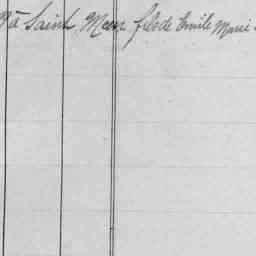 à Saint Meen fils de Emile Marie